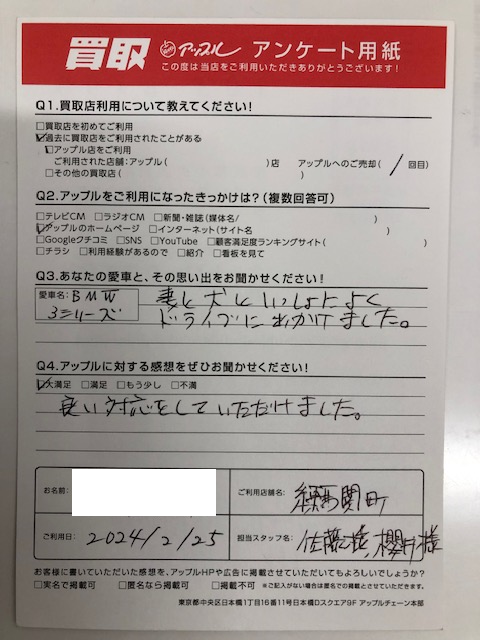 買取 アップル アンケート用紙
この度は当店をご利用いただきありがとうございます!
Q1.買取店利用について教えてください!
□買取店を初めてご利用
☑過去に買取店をご利用されたことがある
□アップル店をご利用
ご利用された店舗:アップル( )店 アップルへのご売却( / 回目)
□その他の買取店( )
Q2.アップルをご利用になったきっかけは?(複数回答可)
□テレビCM □ラジオCM □新聞・雑誌(媒体名/ )
☑アップルのホームページ □インターネット(サイト名 )
□Googleクチコミ □SNS □YouTube □顧客満足度ランキングサイト( )
□チラシ □利用経験があるので □紹介 □看板を見て
Q3.あなたの愛車と、その思い出をお聞かせください!
愛車名:BMW 妻と犬といっしょによく
3シリーズ ドライブに出かけました。
Q4.アップルに対する感想をぜひお聞かせください!
☑大満足 □満足 □もう少し □不満
良い対応をしていただけました。
お名前: ご利用店舗名: 練馬関町
ご利用日: 2024/2/25 担当スタッフ名: 佐藤様,櫻井様
お客様に書いていただいた感想を、アップルHPや広告に掲載させていただいてもよろしいでしょうか?
□実名で掲載可 □匿名なら掲載可 □掲載不可 ※ご記入がない場合は匿名での掲載とさせていただきます。
東京都中央区日本橋1丁目16番11号日本橋Dスクエア9F アップルチェーン本部